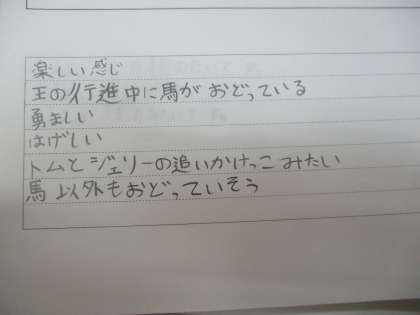 楽しい感じ
王の行進中に馬がおどっている
勇ましい
はげしい
トムとジェリーの追いかけっこみたい
馬以外もおどっていそう